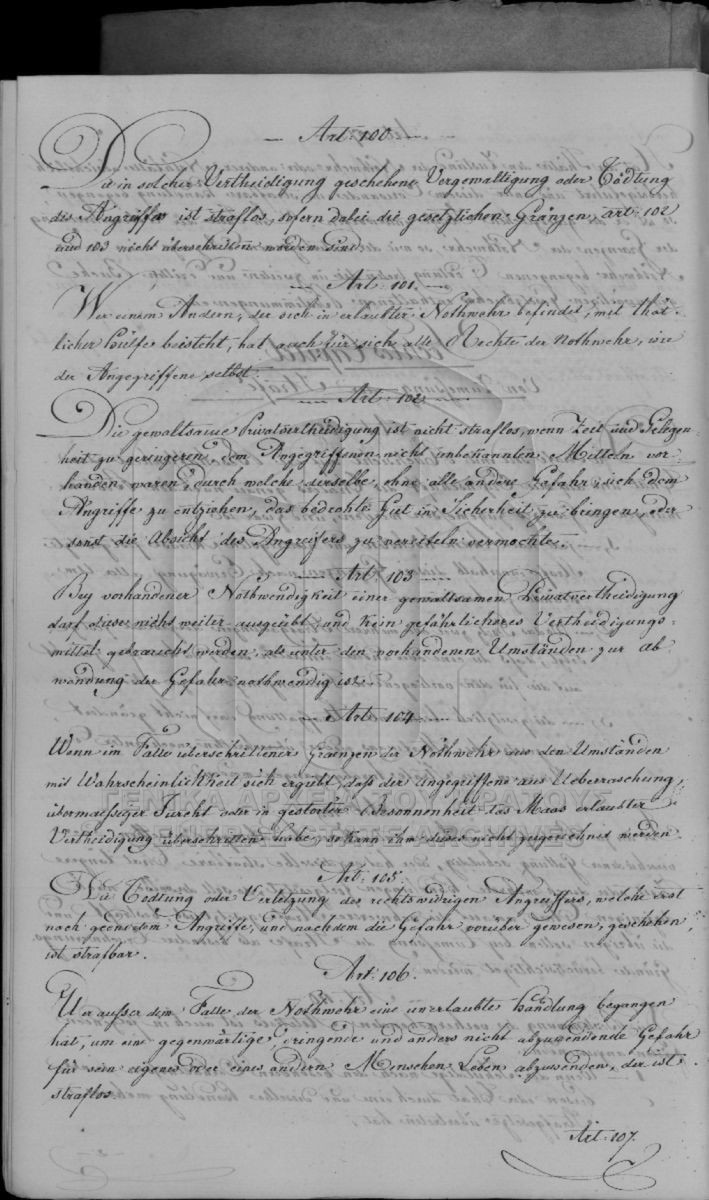 — Art: 100 —
Die in solcher Vertheidigung geschehene Vergewaltigung oder Tödtung
des Angriffes ist straflos, sofern dabei die gesetzlichen Gränzen, art: 102
und 103 nicht überschritten worden sind.
— Art: 101. —
Wer einem Andern, der sich in erlaubter Nothwehr befindet, mit thät-
licher Hülfe beisteht, hat auch für sich alle Rechte der Nothwehr, wie
der Angegriffene selbst.
— Art: 102 —
Die gewaltsame Privatvertheidigung ist nicht straflos, wenn Zeit und Gelegen-
heit zu geringeren, dem Angegriffenen nicht unbekannten Mitteln vor-
handen waren, durch welche derselbe, ohne alle andere Gefahr, sich dem
Angriffe zu entziehen, das bedrohte Gut in Sicherheit zu bringen, oder
sonst die Absicht des Angreifers zu vereiteln vermochte.
— Art: 103 —
Bey vorhandener Nothwendigkeit einer gewaltsamen Privatvertheidigung
darf diese nicht weiter ausgeübt, und kein gefährlicheres Vertheidigungs-
mittel gebraucht werden, als unter den vorhandenen Umständen zur Ab
wendung der Gefahr nothwendig ist.
— Art: 104 —
Wenn im Falle überschrittener Gränzen der Nothwehr aus den Umständen
mit Wahrscheinlichkeit sich ergiebt, daß der Angegriffene aus Ueberraschung,
übermaessiger Furcht oder in gestörter Besonnenheit das Maas erlaubter
Vertheidigung überschritten habe, so kann ihm dieses nicht zugerechnet werden.
ΓΕΝΙΚΑ ΑΡΧΕΙΑ ΤΟΥ ΚΡΑΤΟΥΣ
Art: 105.
Die Tödtung oder Verletzung des rechtswidrigen Angreiffers, welche erst
nach geendetem Angriffe, und nachdem die Gefahr vorüber gewesen, geschehen,
ist strafbar.
Art: 106.
Wer ausser dem Falle der Nothwehr eine unerlaubte Handlung begangen
hat, um eine gegenwärtige, dringende und anders nicht abzuwendende Gefahr
für sein eigenes oder eines andern Menschen Leben abzuwenden, der ist
straflos.
Art: 107.